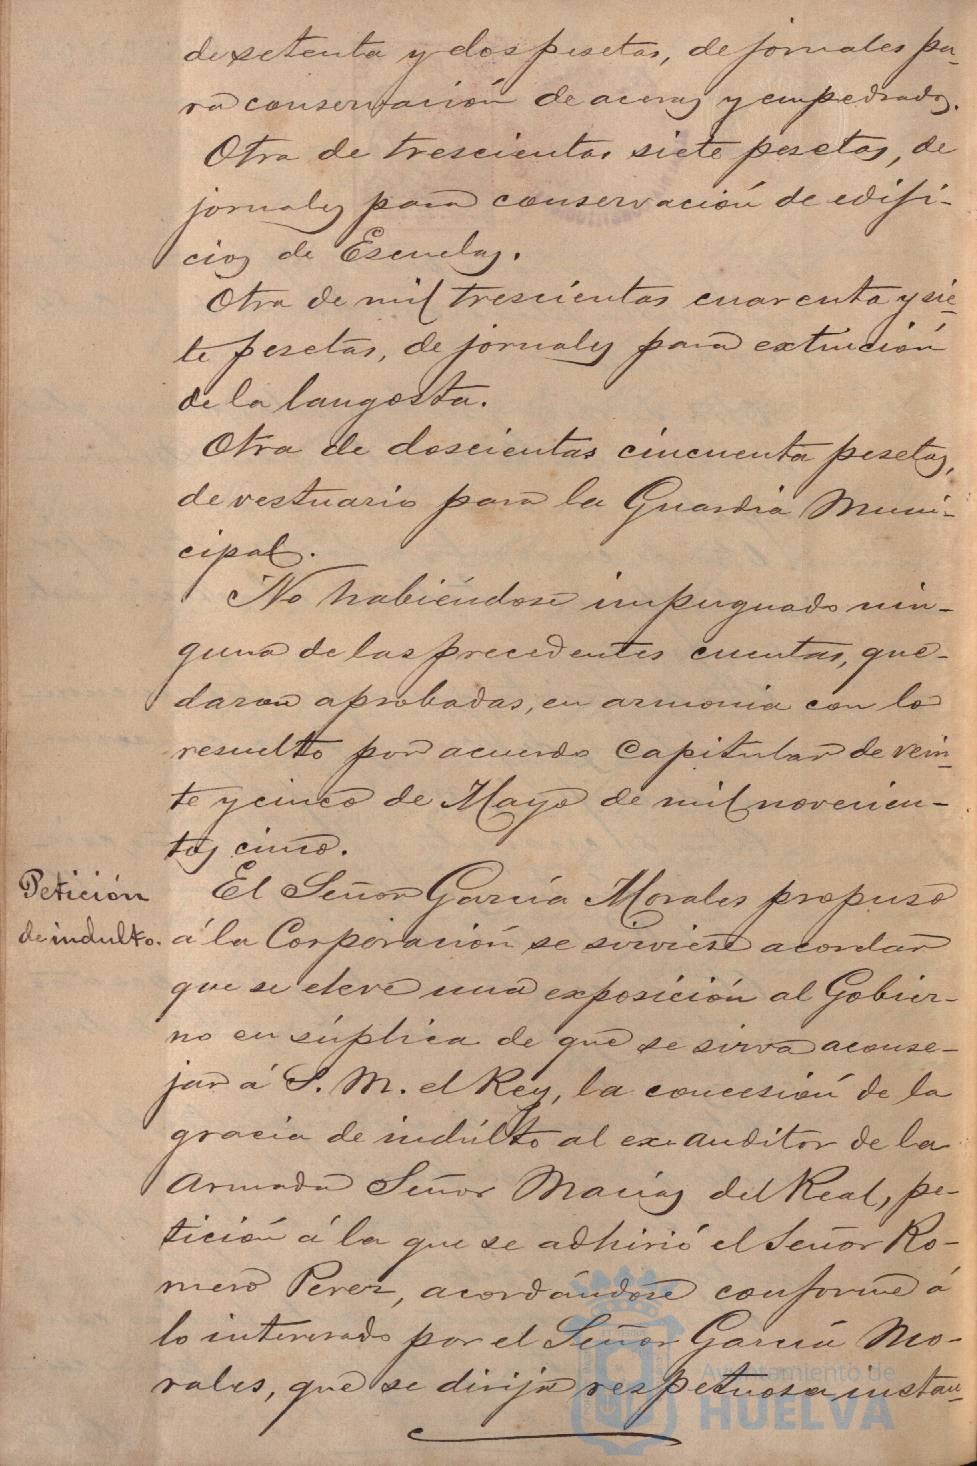 de setenta y dos pesetas, de jornales pa-
ra conservación de aceras y empedrados.
Otra de trescientas siete pesetas, de
jornales para conservación de edifi-
cios de Escuelas.
Otra de mil trescientas cuarenta y sie-
te pesetas, de jornales para extinción
de la langosta.
Otra de doscientas cincuenta pesetas,
de vestuario para la Guardia Muni-
cipal.
No habiéndose impugnado nin-
guna de las precedentes cuentas, que-
daron aprobadas, en armonia con lo
resuelto por acuerdo Capitular de vein-
te y cinco de Mayo de mil novecien-
tos cinco.
Petición
de indulto.
El Señor García Morales propuso
á la Corporación se sirviese acordar
que se eleve una exposición al Gobier-
no en súplica de que se sirva aconse-
jar á S. M. el Rey, la concesión de la
gracia de indúlto al ex-auditor de la
Armada Señor Macias del Real, pe-
tición á la que se adhirió el Señor Ro-
mero Perez, acordándose conforme á
lo interesado por el Señor García Mo-
rales, que se dirija respetuosa instan-
Ayuntamiento de
HUELVA